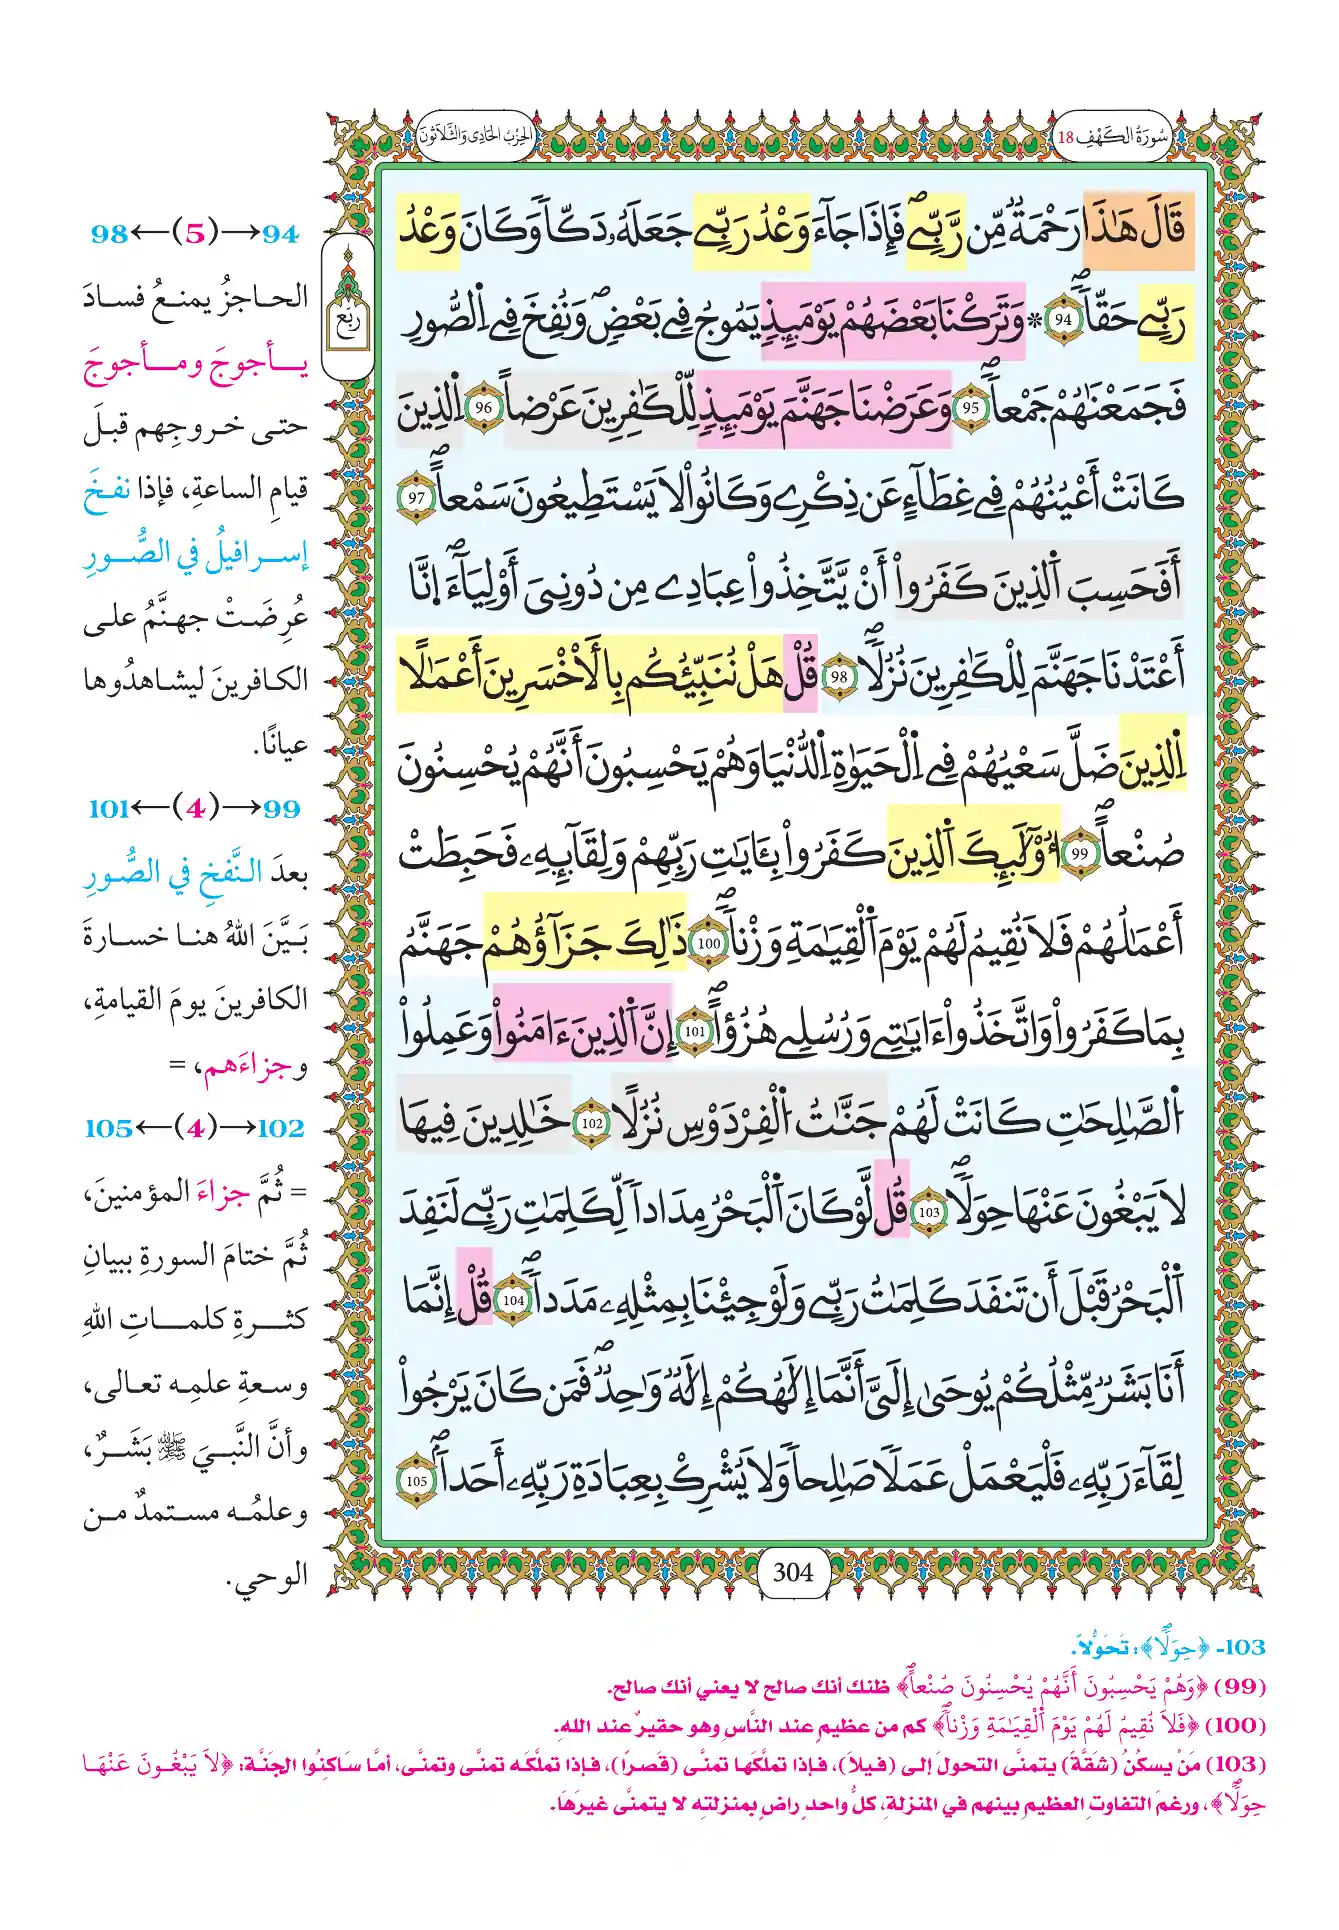 سُورَةُ الكَهْفِ 18
الحِزْبُ الحَادِي وَالثَّلَاثُونَ
قَالَ هَٰذَا رَحْمَةٌ مِّن رَّبِّےۖ فَإِذَا جَآءَ وَعْدُ رَبِّے جَعَلَهُۥ دَكّاٗ وَكَانَ وَعْدُ
رَبِّے حَقّاٗۖ 94 * وَتَرَكْنَا بَعْضَهُمْ يَوْمَئِذٖ يَمُوجُ فِے بَعْضٖۖ وَنُفِخَ فِے اِ۬لصُّورِ
فَجَمَعْنَٰهُمْ جَمْعاٗۖ 95 وَعَرَضْنَا جَهَنَّمَ يَوْمَئِذٖ لِّلْكَٰفِرِينَ عَرْضاًۖ 96 اِ۬لذِينَ
كَانَتْ أَعْيُنُهُمْ فِے غِطَآءٍ عَن ذِكْرِے وَكَانُواْ لَا يَسْتَطِيعُونَ سَمْعاًۖ 97
أَفَحَسِبَ اَ۬لذِينَ كَفَرُواْ أَنْ يَّتَّخِذُواْ عِبَادِے مِن دُونِيَ أَوْلِيَآءَۖ ا۪نَّا
أَعْتَدْنَا جَهَنَّمَ لِلْكَٰفِرِينَ نُزُلاٗۖ 98 قُلْ هَلْ نُنَبِّئُكُم بِالَاخْسَرِينَ أَعْمَٰلاً
اِ۬لذِينَ ضَلَّ سَعْيُهُمْ فِے اِ۬لْحَيَوٰةِ اِ۬لدُّنْيَا وَهُمْ يَحْسِبُونَ أَنَّهُمْ يُحْسِنُونَ
صُنْعاًۖ 99 ا۟وْلَٰٓئِكَ اَ۬لذِينَ كَفَرُواْ بِـَٔايَٰتِ رَبِّهِمْ وَلِقَآئِهِۦ فَحَبِطَتَ
اَعْمَٰلُهُمْ فَلَا نُقِيمُ لَهُمْ يَوْمَ اَ۬لْقِيَٰمَةِ وَزْناٗۖ 100 ذَٰلِكَ جَزَآؤُهُمْ جَهَنَّمُ
بِمَا كَفَرُواْ وَاتَّخَذُواْ ءَايَٰتِے وَرُسُلِے هُزُؤاًۖ 101 إِنَّ اَ۬لذِينَ ءَامَنُواْ وَعَمِلُواْ
اُ۬لصَّٰلِحَٰتِ كَانَتْ لَهُمْ جَنَّٰتُ اُ۬لْفِرْدَوْسِ نُزُلاً 102 خَٰلِدِينَ فِيهَا
لَا يَبْغُونَ عَنْهَا حِوَلاٗۖ 103 قُل لَّوْ كَانَ اَ۬لْبَحْرُ مِدَاداٗ لِّكَلِمَٰتِ رَبِّے لَنَفِدَ
اَ۬لْبَحْرُ قَبْلَ أَن تَنفَدَ كَلِمَٰتُ رَبِّے وَلَوْ جِئْنَا بِمِثْلِهِۦ مَدَداٗۖ 104 قُلِ اِنَّمَآ
أَنَا بَشَرٞ مِّثْلُكُمْ يُوحَىٰٓ إِلَيَّ أَنَّمَآ إِلَٰهُكُمْ إِلَٰهٞ وَٰحِدٞۖ فَمَن كَانَ يَرْجُواْ
لِقَآءَ رَبِّهِۦ فَلْيَعْمَلْ عَمَلاٗ صَٰلِحاٗ وَلَا يُشْرِكْ بِعِبَادَةِ رَبِّهِۦٓ أَحَداٗۖ 105
304
ربع
94→(5)←98
الحاجزُ يمنعُ فسادَ
يأجوجَ ومأجوجَ
حتى خروجِهم قبلَ
قيامِ الساعةِ، فإذا نفخَ
إسرافيلُ في الصُّورِ
عُرِضَتْ جهنَّمُ على
الكافرينَ ليشاهدُوها
عيانًا.
99→(4)←101
بعدَ النَّفخِ في الصُّورِ
بَيَّنَ اللهُ هنا خسارةَ
الكافرينَ يومَ القيامةِ،
وجزاءَهم، =
102→(4)←105
= ثُمَّ جزاءَ المؤمنينَ،
ثُمَّ ختامَ السورةِ ببيانِ
كثرةِ كلماتِ اللهِ
وسعةِ علمِه تعالى،
وأنَّ النَّبيَ ﷺ بَشَرٌ،
وعلمُه مستمدٌ من
الوحي.
103- ﴿حِوَلاٗۖ﴾: تَحَوُّلاً.
(99) ﴿وَهُمْ يَحْسِبُونَ أَنَّهُمْ يُحْسِنُونَ صُنْعاًۖ﴾ ظنك أنك صالح لا يعني أنك صالح.
(100) ﴿فَلَا نُقِيمُ لَهُمْ يَوْمَ اَ۬لْقِيَٰمَةِ وَزْناٗۖ﴾ كم من عظيمٍ عند النَّاسِ وهو حقيرٌ عند اللهِ.
(103) مَنْ يسكُنُ (شقَّةً) يتمنَّى التحولَ إلى (فيلا)، فإذا تملَّكَها تمنَّى (قصرًا)، فإذا تملَّكَه تمنَّى وتمنَّى، أمَّا سَاكنُوا الجَنَّة: ﴿لَا يَبْغُونَ عَنْهَا
حِوَلاٗۖ﴾، ورغمَ التفاوتِ العظيمِ بينهم في المنزلةِ، كلُّ واحدٍ راضٍ بمنزلتِه لا يتمنَّى غيرَهَا.